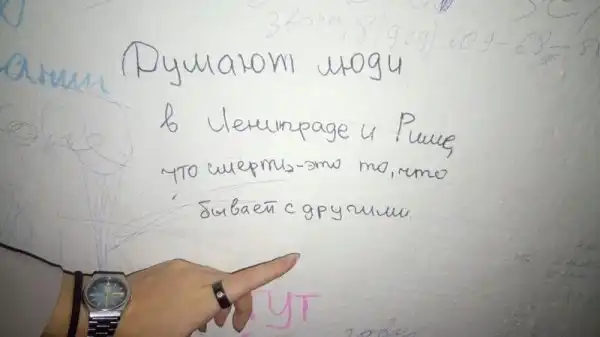 Думают люди
в Ленинграде и Риме,
что смерть-это то, что
бывает с другими.
ТУТ